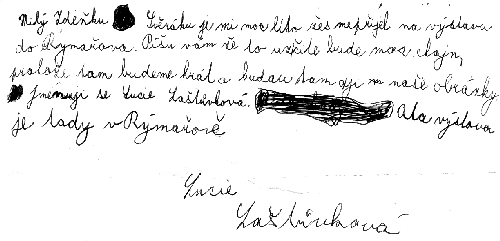 Milý Zdeňku Svěráku je mi moc líto žes nepřijel na výstavu
do Rýmařova. Píšu vám že to určitě bude moc dojm,
protože tam budeme hrát a budou tam i naše obrázky
Jmenuji se Lucie Laštůvková. A ta výstava
je tady v Rýmařově
Lucie
Laštůvková